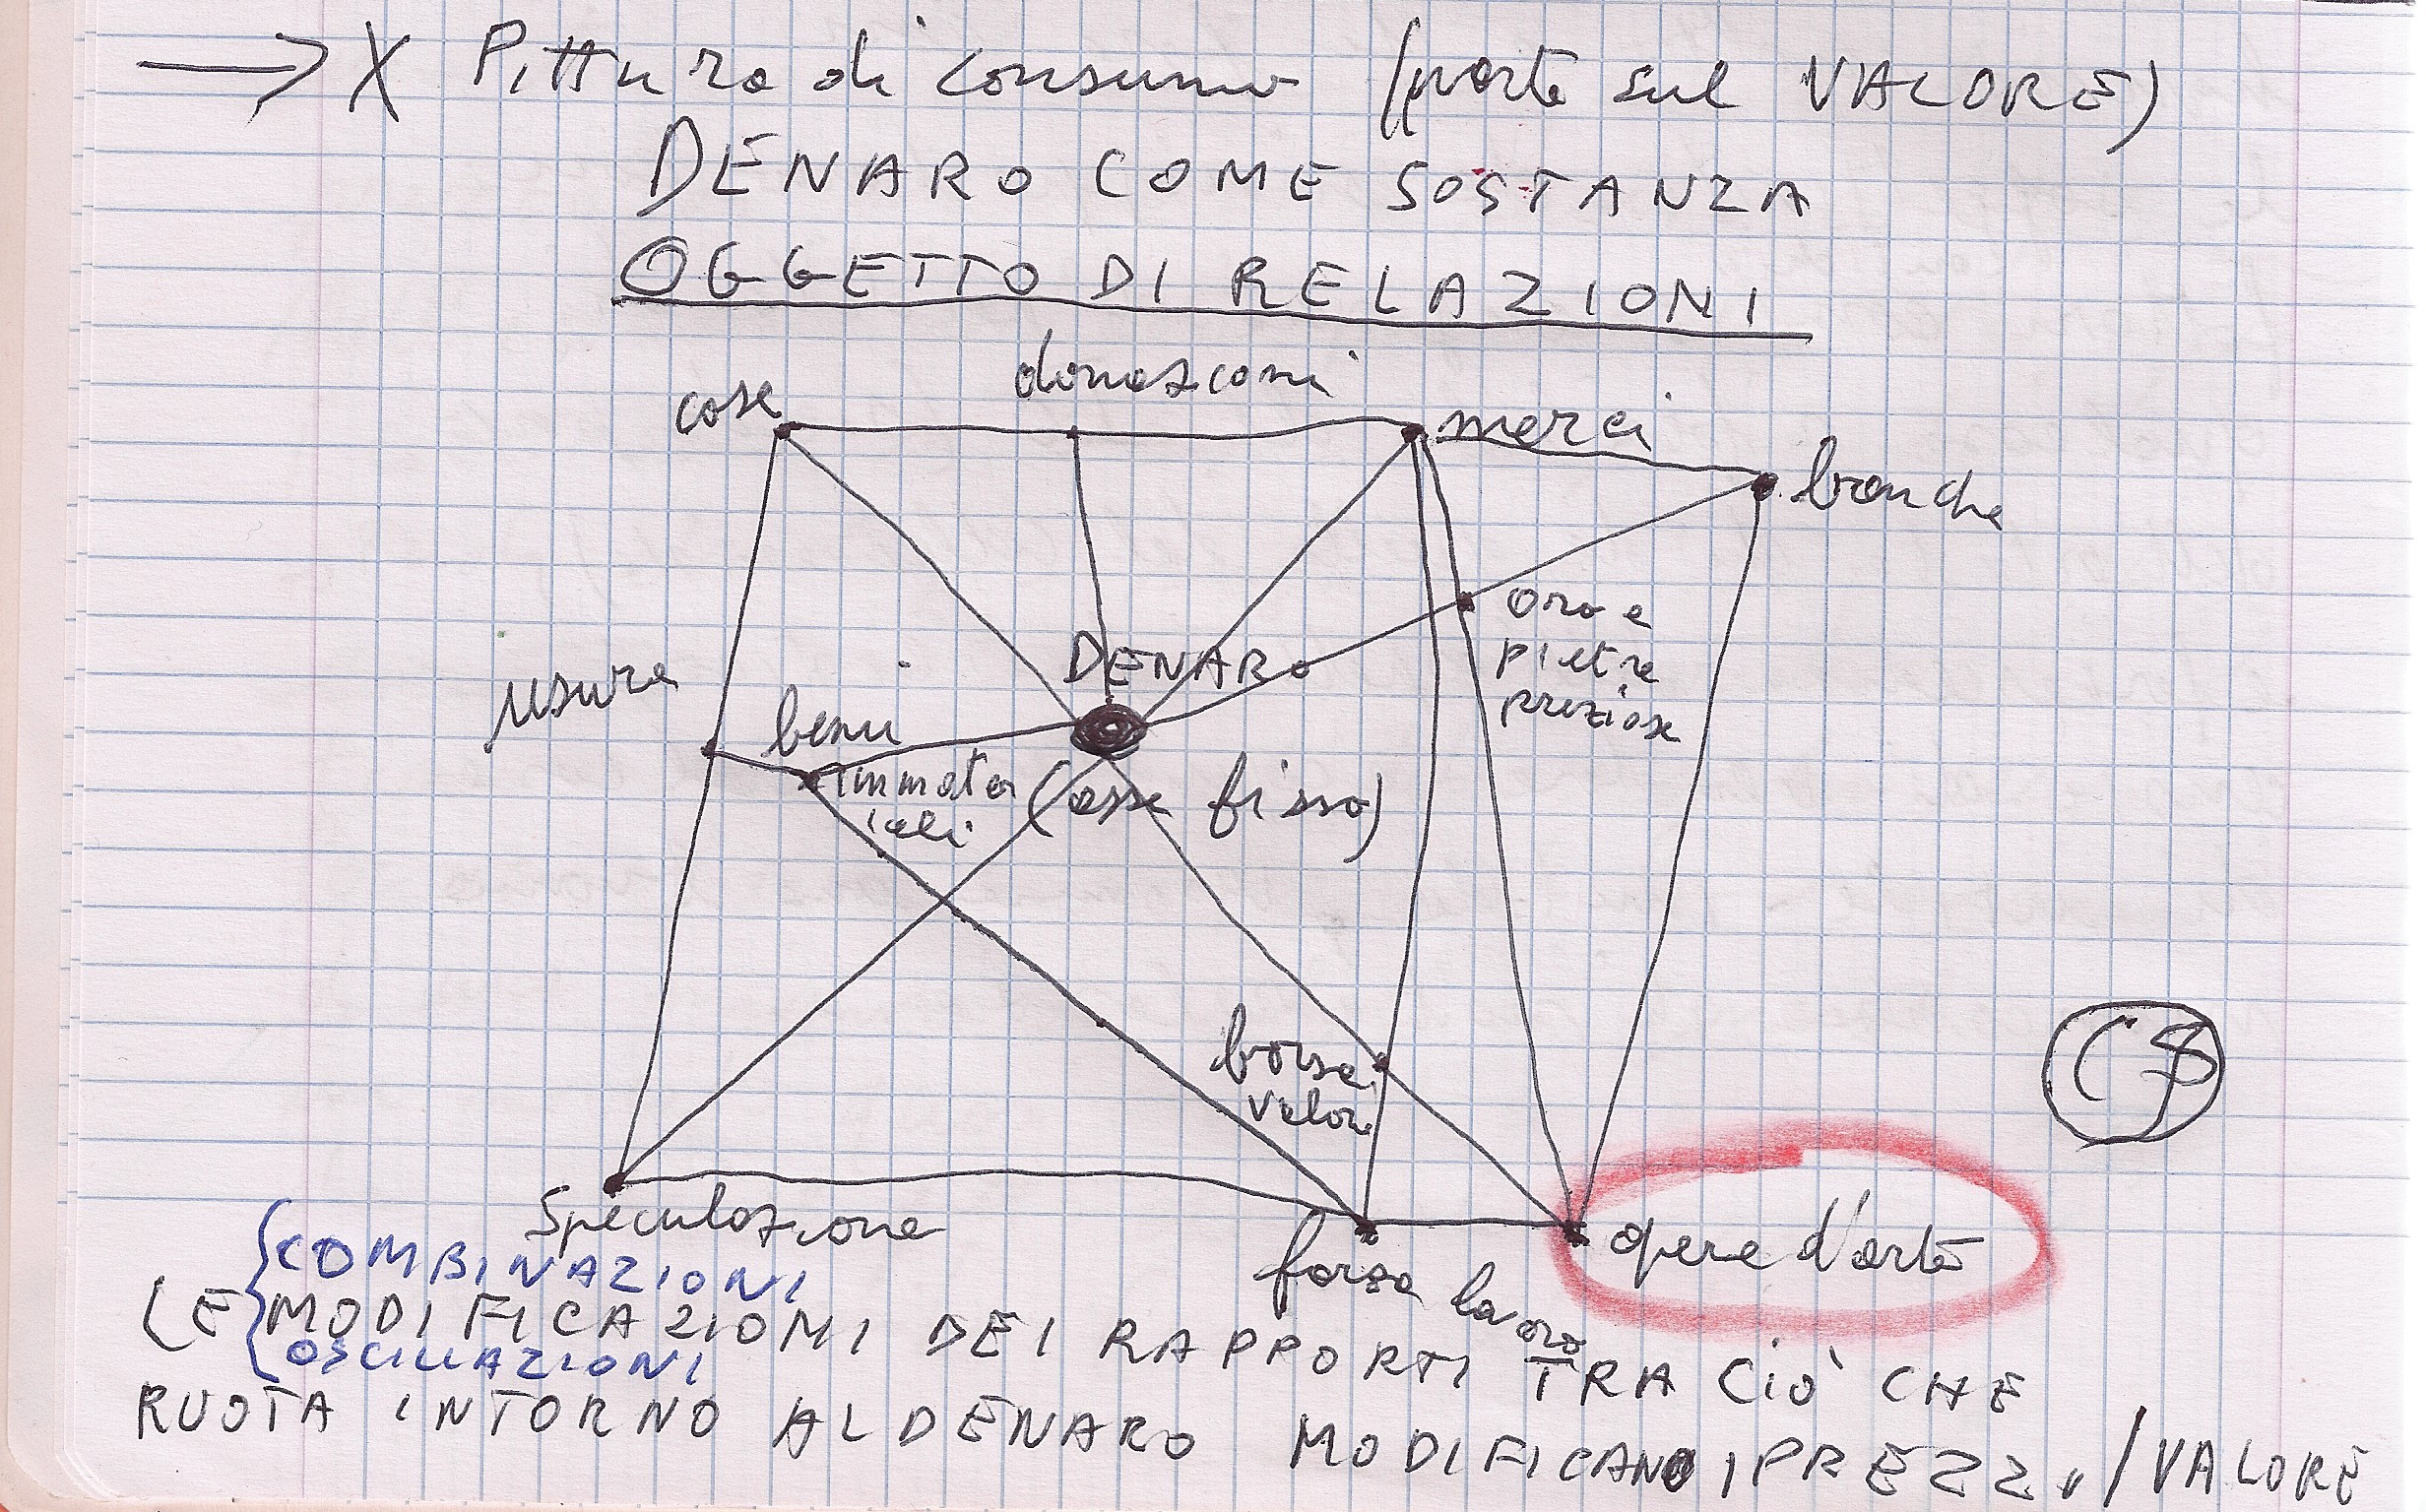 → X Pittura di consumo (parte sul VALORE)
DENARO COME SOSTANZA
OGGETTO DI RELAZIONI
donazioni
cose
merci
banche
oro e
pietre
preziose
DENARO
usura
beni
immater
iali
(asse fisso)
borsa
valori
Speculazione
forza lavoro
opere d'arte
COMBINAZIONI
LE MODIFICAZIONI DEI RAPPORTI TRA CIÒ CHE
OSCILLAZIONI
RUOTA INTORNO AL DENARO MODIFICANO I PREZZI/VALORE